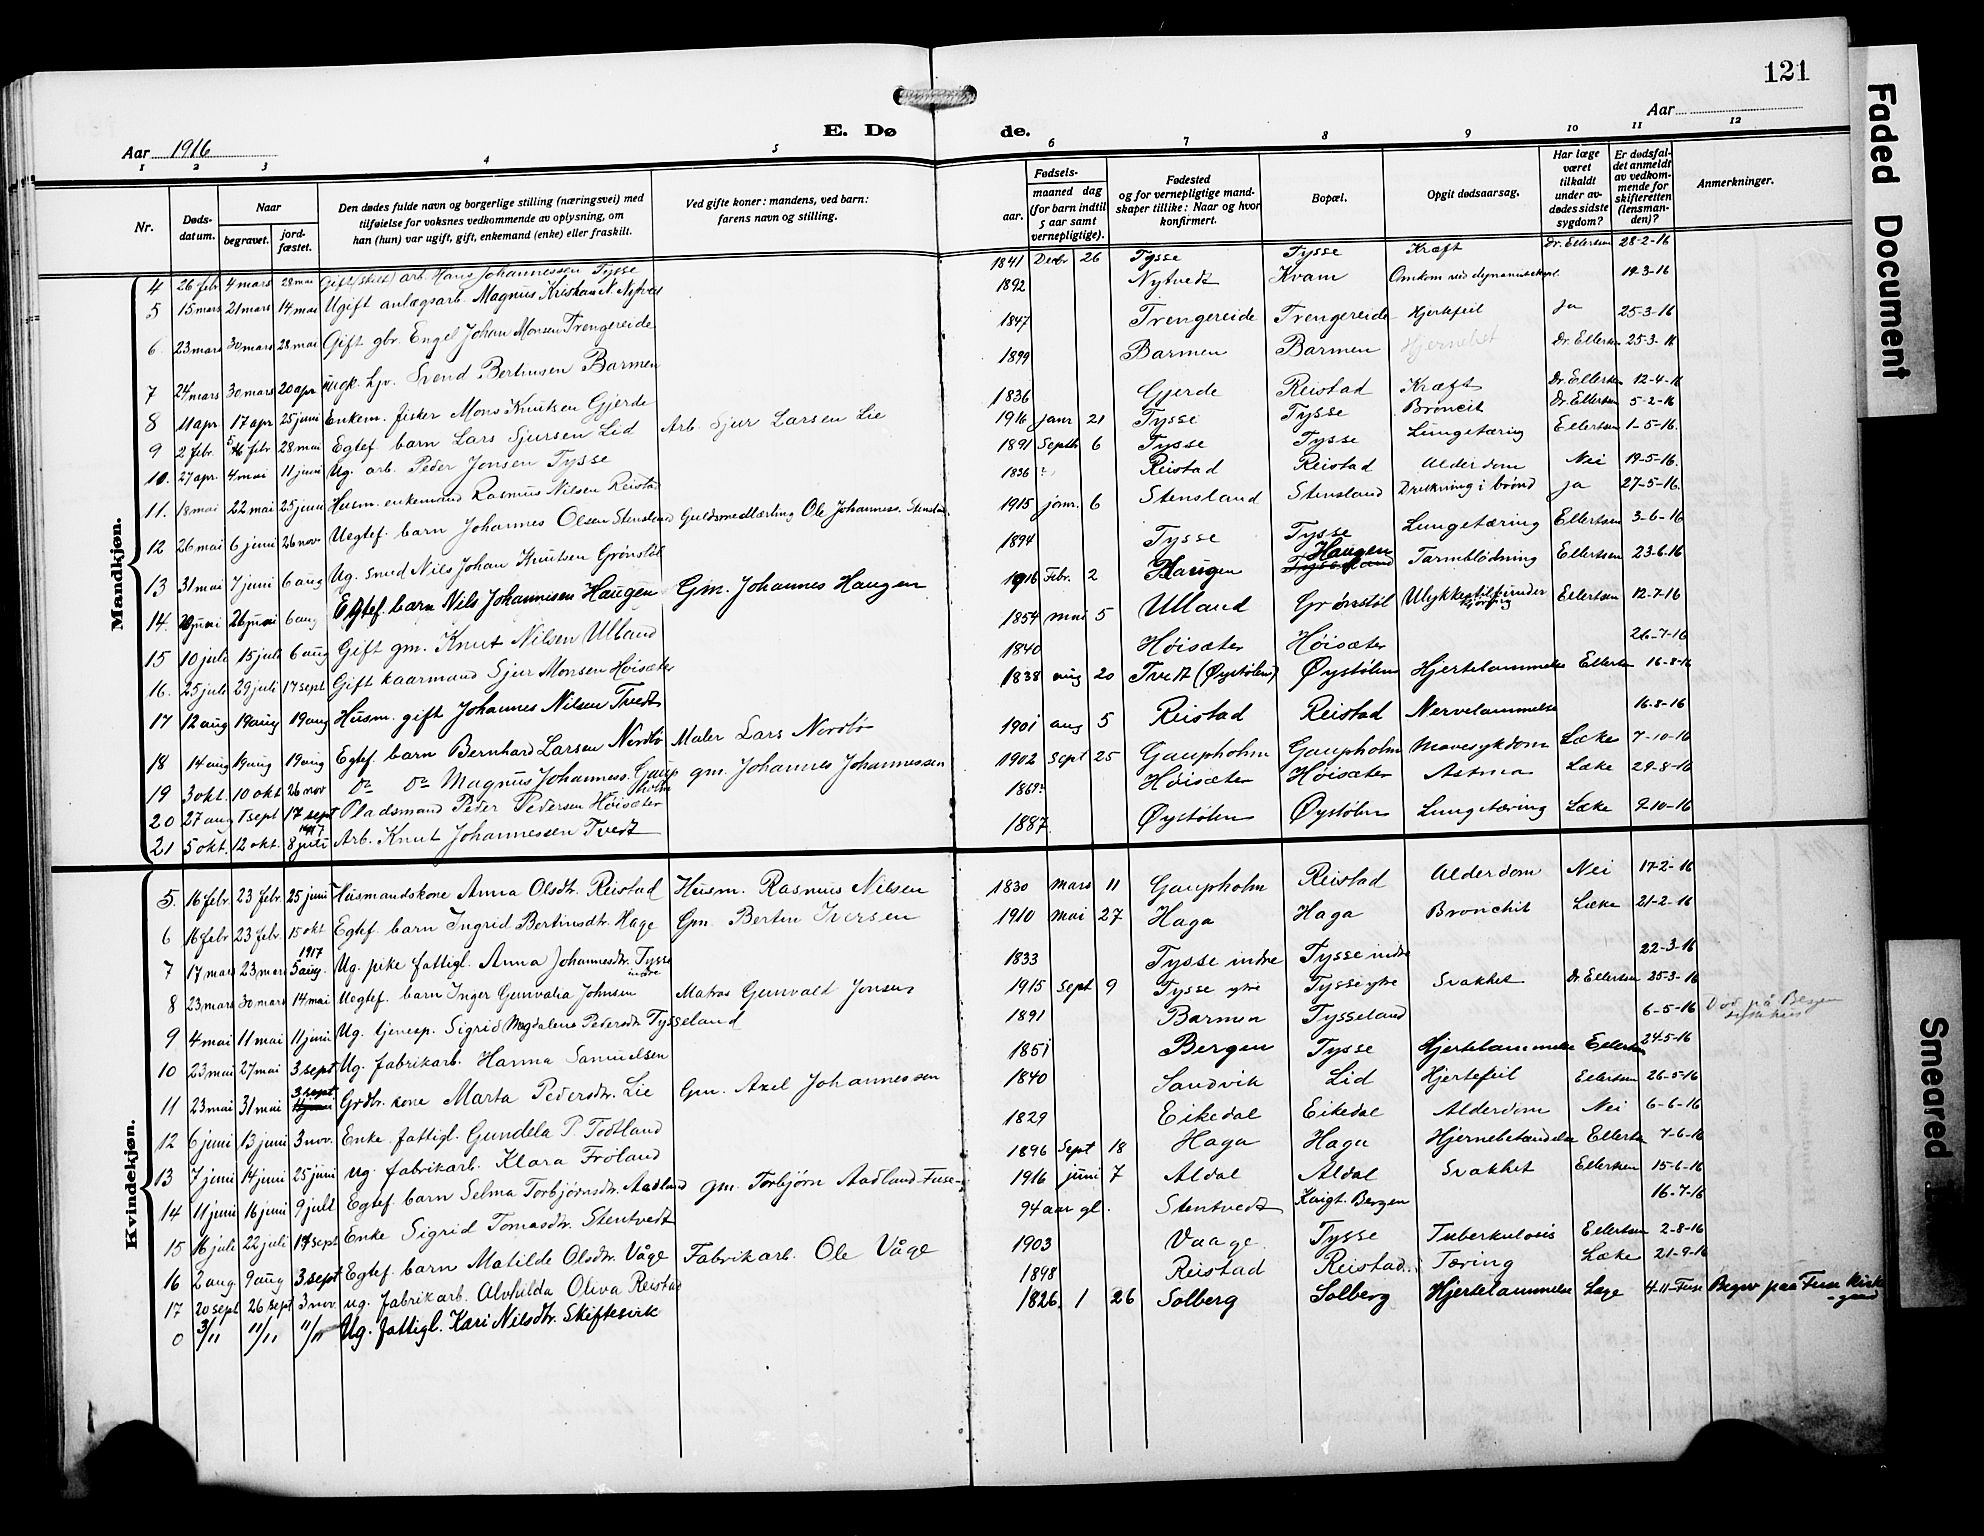 121
Faded Document
Smeared
Aar 1916
E. Dø de.
Aar
1 2 3 4 5 6 7 8 9 10 11 12
Nr.
Døds-datum.
Naar
begravet.
jord-fæstet.
Den dødes fulde navn og borgerlige stilling (næringsvei) med tilføielse for voksnes vedkommende av oplysning, om han (hun) var ugift, gift, enkemand (enke) eller fraskilt.
Ved gifte koner: mandens, ved barn: farens navn og stilling.
Fødsels-
aar.
maaned dag (for barn indtil 5 aar samt vernepligtige).
Fødested og for vernepligtige mandskaper tillike: Naar og hvor konfirmert.
Bopæl.
Opgit dødsaarsag.
Har læge været tilkaldt under avdødes sidste sygdom?
Er dødsfaldet anmeldt av vedkommende for skifteretten (lensmanden)?
Anmerkninger.
Mandkjøn.
4 26 febr 4 mars 28 mai Gift (skilt) arb. Hans Johannessen Tysse 1841 Decbr 26 Tysse Tysse Kræft Dr. Ellertsen 28-2-16
5 15 mars 21 mars 14 mai Ugift anlægsarb. Magnus Kristian N. Nytvedt 1892 Nytvedt Kvam Omkom ved 19-3-16
6. 23 mars 30 mars 28 mai Gift gbr. Engel Johan Monsen Trengereide 1847 Trengereide Trengereide Hjertefeil Ja 25-3-16
7 24 mars 30 mars 20 apr Svend Bertinusen Barmen 1899 Barmen Barmen Dr. Ellertsen 25-3-16
8 11 apr 17 apr 25 juni Enkem. fisker Mons Knutsen Gjerde 1836 Gjerde Reistad Kræft Dr. Ellertsen 12-4-16
9 2 febr. febr 28 mai Egtef. barn Lars Sjursen Lid Arb. Sjur Larsen Lie 1916 janr 21 Tysse Tysse Broncit Dr. Ellertsen 5-2-16
10. 27 apr. 4 mai 11 juni Ug. arb. Peder Jonsen Tysse 1891 Septb 6 Tysse Tysse Lungetæring Ellertsen 1-5-16.
11. 18 mai 22 mai 25 juni Husm. enkemand Rasmus Nilsen Reistad 1836 ? Reistad Reistad Alderdom Nei 19-5-16.
12 26 mai 6 juni 26 nov Uegtef. barn Johannes Olsen Stensland Guldsmedlærling Ole Johanness. Stensland 1915 janr. 6 Stensland Stensland Drukning i brønd ja 27-5-16.
13 31 mai 7 juni 6 aug Ug. smed Nils Johan Knutsen Grønstøl 1894 Tysse Tysse Lungetæring Ellertsen 3-6-16
14. 20 juni 26 juni 6 aug Egtef. barn Nils Johannesen Haugen Gm. Johannes Haugen 1916 Febr. 2 Haugen Haugen Tarmblødning Ellertsen 23-6-16
15 10 juli 15 juli 6 aug Gift gm. Knut Nilsen Ulland 1854 mai 5 Ulland Grønstøl Ulykkestilf under kjøring Ellertsen 12-7-16
16. 25 juli 29 juli 17 sept Gift kaarmand Sjur Monsen Høisæter 1840 Høisæter Høisæter 26-7-16
17 12 aug 19 aug 19 aug Husm. gift Johannes Nilsen Tvedt 1838 aug 20 Tvedt (Øystølen) Øystølen Hjertelammelse Ellertsen 16-8-16
18 14 aug 19 aug 19 aug Egtef. barn Bernhard Larsen Nordbø Maler Lars Nordbø 1901 aug 5 Reistad Reistad Nervelammelse 16-8-16
19 3 okt. 10 okt 26 nov Do Do Magnus Johanness. Gaupholm gm. Johannes Johannessen 1902 Sept 25 Gaupholm Gaupholm Mavesykdom Læke 7-10-16
20 27 aug 1 sept 17 sept Pladsmand Peder Pedersen Høisæter 1869? Høisæter Høisæter Astma Læke 29-8-16
21 5 okt. 12 okt. 8 juli 1917 Arb. Knut Johannessen Tvedt 1887 Øystølen Øystølen Lungetæring Læke 9-10-16
Kvindekjøn.
5. 16 febr. 23 febr. 25 juni Husmandskone Anna Olsdtr. Reistad Husm. Rasmus Nilsen 1830 mars 11 Gaupholm Reistad Alderdom Nei 17-2-16
6 16 febr 23 febr. 15 okt Egtef. barn Ingrid Bertinusdtr. Hage Gm. Bertin Iversen 1910 mai 27 Haga Haga Bronchit Læke 21-2-16
7 17 mars 23 mars 5 aug. 1917 Ug. pike fattigl. Anna Johannesdtr. Tysse indre 1833 Tysse indre Tysse indre 22-3-16
8 23 mars 30 mars 14 mai Uegtef. barn Inger Gunvalia Johnsen Matros Gunvald Jonsen 1915 Sept 9 Tysse ytre Tysse ytre Svakhet Dr. Ellertsen 25-3-16
9 4 mai 11 mai 11 juni Ug. tjenesp. Sigrid Magdalene Pedersdtr. Tysseland 1891 Barmen Tysseland 6-5-16 Død på Bergen sykehus
10 23 mai 27 mai 3 sept Ug. fabrikarb. Hanna Samuelsen 1851 Bergen Tysse Hjertelammelse Ellertsen 24-5-16
11 23 mai 31 mai 3 sept Grdbr. kone Marta Pedersdtr. Lie Gm. Axel Johannessen 1840 Sandvik Lid Hjertefeil Ellertsen 26-5-16
12 6 juni 13 juni 3 nov. Enke fattigl. Gundela P. Todtland 1829 Eikedal Eikedal Alderdom Nei 6-6-16
13 7 juni 14 juni 25 juni ug. fabrikarb. Klara Frøland 1896 Sept 18 Haga Haga Hjernebetændelse Ellertsen 7-6-16
14 11 juni 16 juni 9 juli Egtef. barn Selma Torbjørnsdtr. Aadland gm. Torbjørn Aadland-Fuse 1916 juni 7 Aldal Aldal Svakhet Ellertsen 15-6-16
15 16 juli 22 juli 17 sept Enke Sigrid Tomasdtr. Stentvedt 94 aar gl. Stentvedt Bergen 16-7-16
16 2 aug 9 aug 3 sept Egtef. barn Matilde Olsdtr. Våge Fabrikarb. Ole Våge 1903 Vaage Tysse Tuberkulosis Ellertsen 2-8-16
17 20 sept 26 sept 3 nov. ug. fabrikarb. Alvhilda Oliva Reistad 1898 Reistad Reistad Tæring Læke 21-9-16
0 3/11 11/11 11/11 Ug. fattigl. Kari Nilsdtr. Skiftesvik 1826 1 26 Solberg Solberg Hjertelammelse Læge 4-11-Fuse Begrv paa Fuse kirkegaard